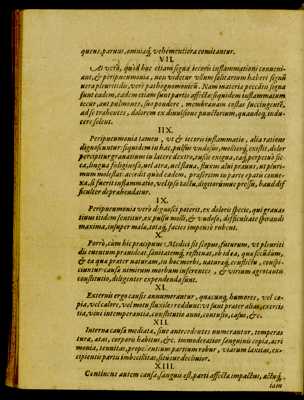 quens, parnus, omniaq́; vehementiora comitantur.
VII.
At verò, quòd huc etiam signa iecoris inflammationis conueni-
ant, & peripneumonia, non videtur vllum salitarium haberi signũ
vera pleuritidis, veri pathognomonicũ. Nam materia peccãte signa
sunt eadem, eadem etiam sunt partis affectæ: siquidem inflammatum
iecur, aut pulmones, suo pondere, membranam costas succingentẽ,
ad se trahentes, dolorem ex diuulsione puncturum, quandoq́; indu-
cere solent.
IIX.
Peripneumonia tamen, vt & iecoris inflammatio, alia ratione
dignoscuntur: siquidem in hac, pulsus vndosus, moliorq́; existit, dolor
percipitur grauatiuus in latere dextro, tussis exigua, eaq́; perpetuò sic-
ca, lingua subliginosa, vel atra, vel flaua, fluxus alui prauus, at plurí-
mum molestat. accedit quòd eadem, præsertim in parte epatis conue-
xa, si fuerit inflammatio, vel ipso tactu, digitorumuè pressu, haud dif
ficulter deprehendatur.
IX.
Peripneumonia verò dignosci poterit, ex doloris specie, qui graua-
tiuus itidem sentitur, ex pulsu molli, & vndoso, difficultate spirandi
maxima, insuper mala, totaq́; facies impensè rubent.
X.
Porrò, cùm hic præcipuus Medici sit scopus, futurum, vt pleuriti
dis cuentum præuideat, sanitatemq́; restituat, ob id ea, qua secũdum,
& ea quæ præter naturam, in hoc morbo, naturaq́; conspici-
ciuntur: causa nimirum morbum inferentes, & virium ægrotantis
constitutio, diligenter expendenda sunt.
XI.
Externis ergo causis annumerantur, quacunq́; humores, vel co-
pia, vel calore, vel motu fluxiles reddiuus: vt sunt præter alias, exerci-
tia, vini intemperantia, constitutio anni, contusio, casus, &c.
XII.
Interna causa mediata, siue antecedentes numerantur, temperas
tura, ætas, corporis habitus, &c. immoderatior sanguinis copia, acri
monia, tenuitas, propellentium partium robur, viarum laxitas, ex-
cipientis partis imbecillitas, situsue decliuior.
XIII.
Continens autem causa, sanguis est, parti affectæ impactus, actuq́;
iam